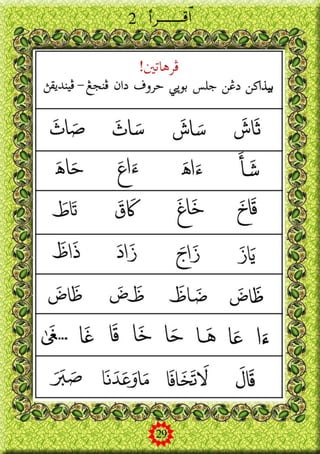 اَقْــرأ 2
ڤرهاتين!
بيذاكن دڠن جلس بوڽي حروف دان ڤنجڠ-ڤينديقڽ
ثَاشَ سَاشَ سَاثَ صَاثَ
شَـأَ ءَاهَ ءَاعَ حَاهَ
قَاخَ خَاغَ كَاقَ تَاطَ
يَازَ زَاجَ زَادَ ذَاظَ
ظَاضَ ضَـاظَ ظَـضَ ظَاضَ
ءَا عَا هَـا حَـا خَا قَا غَا ...
قَالَ لَاتَخَافَا مَاوَعَدَنَا
29